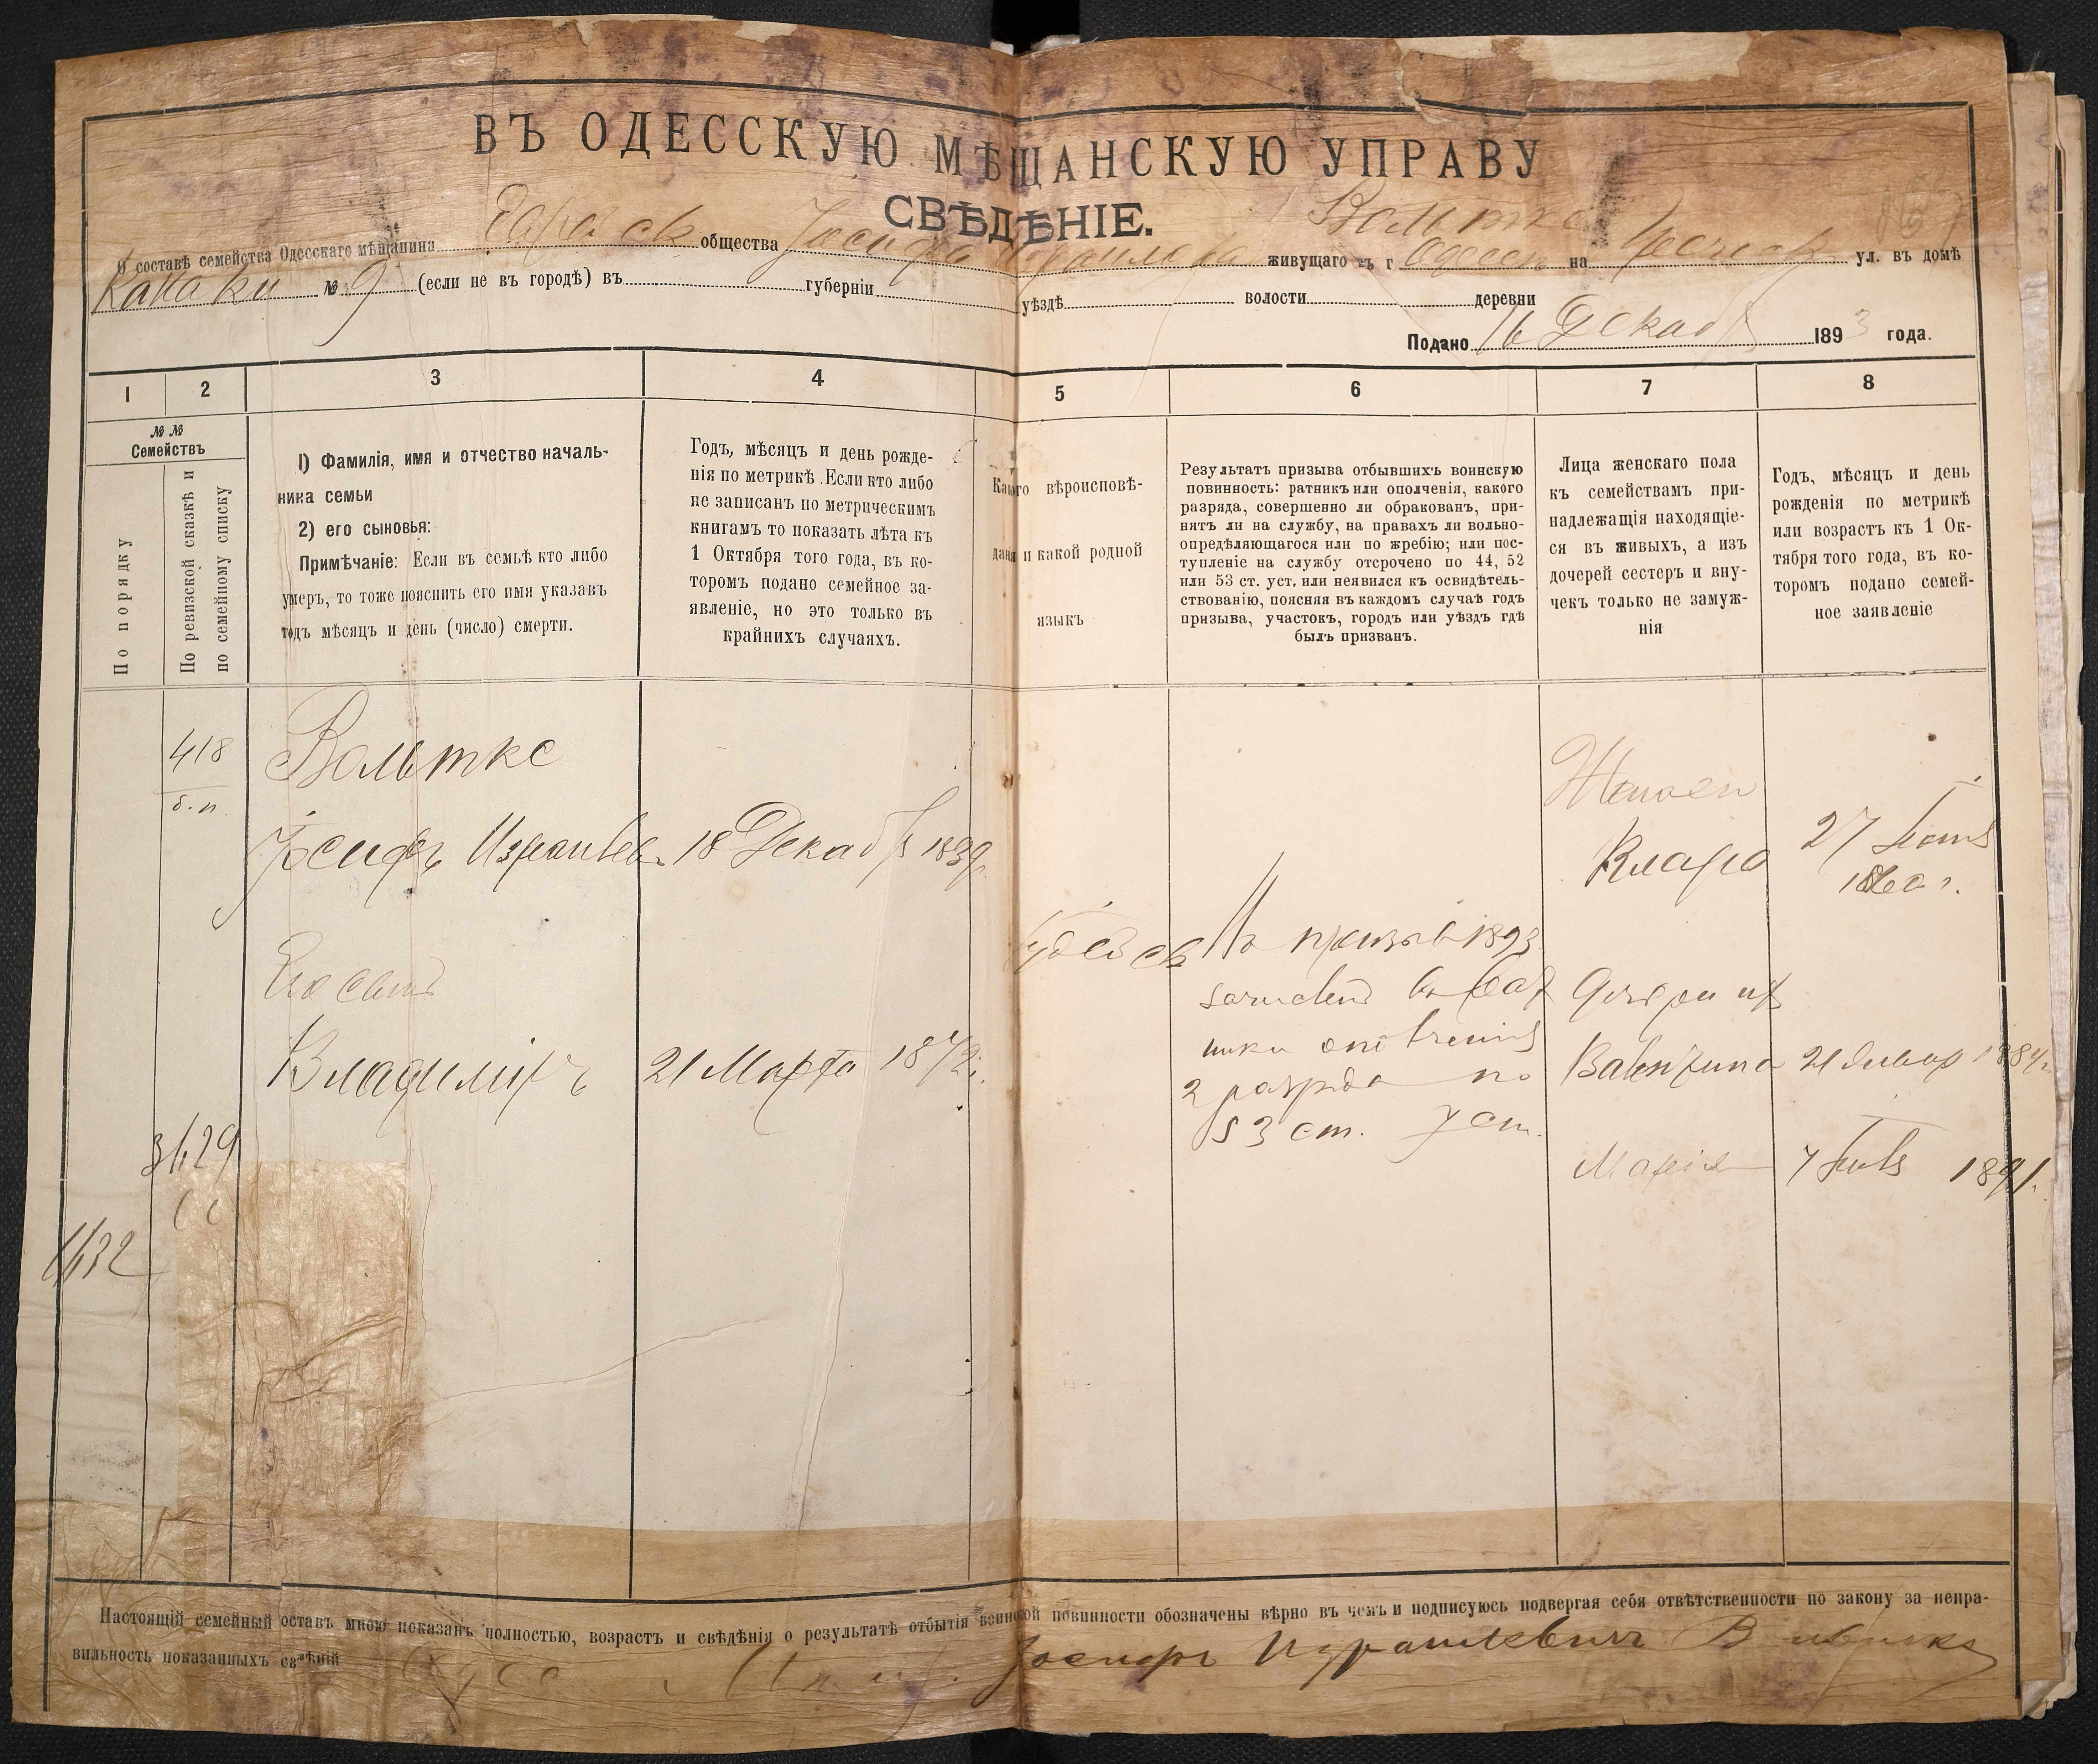 ВЪ ОДЕССКУЮ МѢЩАНСКУЮ УПРАВУ
СВѢДѢНІЕ.
О составѣ семейства Одесскаго мѣщанина Еврейск общества Іосифа Израилева Вольтке живущаго въ г Одессѣ на ул. въ домѣ
Канаки № 9 (если не въ городѣ) въ губерніи уѣздѣ волости деревни
Подано 16 Декабр 1893 года.
1 2 3 4 5 6 7 8
№ №
Семействъ
По порядку
По ревизской сказкѣ и
по семейному списку
1) Фамилія, имя и отчество началь-
ника семьи
2) его сыновья:
Примѣчаніе: Если въ семьѣ кто либо
умеръ, то тоже пояснить его имя указавъ
годъ мѣсяцъ и день (число) смерти.
Годъ, мѣсяцъ и день рожде-
нія по метрикѣ. Если кто либо
не записанъ по метрическимъ
книгамъ то показать лѣта къ
1 Октября того года, въ ко-
торомъ подано семейное за-
явленіе, но это только въ
крайнихъ случаяхъ.
Какого вѣроисповѣ-
данія и какой родной
языкъ
Результатъ призыва отбывшихъ воинскую
повинность: ратникъ или ополченія, какого
разряда, совершенно ли обракованъ, при-
нятъ ли на службу, на правахъ ли вольно-
опредѣляющагося или по жребію; или пос-
тупленіе на службу отсрочено по 44, 52
или 53 ст. уст. или неявился къ освидѣтель-
ствованію, поясняя въ каждомъ случаѣ годъ
призыва, участокъ, городъ или уѣздъ гдѣ
былъ призванъ.
Лица женскаго пола
къ семействамъ при-
надлежащія находящіе-
ся въ живыхъ, а изъ
дочерей сестеръ и вну-
чекъ только не замуж-
нія
Годъ, мѣсяцъ и день
рожденія по метрикѣ
или возрастъ къ 1 Ок-
тября того года, въ ко-
торомъ подано семей-
ное заявленіе
418
б.п.
Вольтке
Іосифъ Израилев 18 Декабр 1839г.
Его сынъ
Владиміръ 21 Марта 1872г.
3629
1632
Іудейск
Въ призывъ 1893
зачисленъ въ рат
ники ополченія
2 разряда по
53 ст. Уст.
Жена его
Клара 27
1860 г.
Дочери их
Валентина 21 Январ 1884г.
Марія 7 1891.
Настоящій семейный оставъ мною показанъ полностью, возрастъ и свѣдѣнія о результатѣ отбытія воинской повинности обозначены вѣрно въ чемъ и подписуюсь подвергая себя отвѣтственности по закону за непра-
вильность показанныхъ свѣдѣній Іосифъ Израилевичъ Вольтке